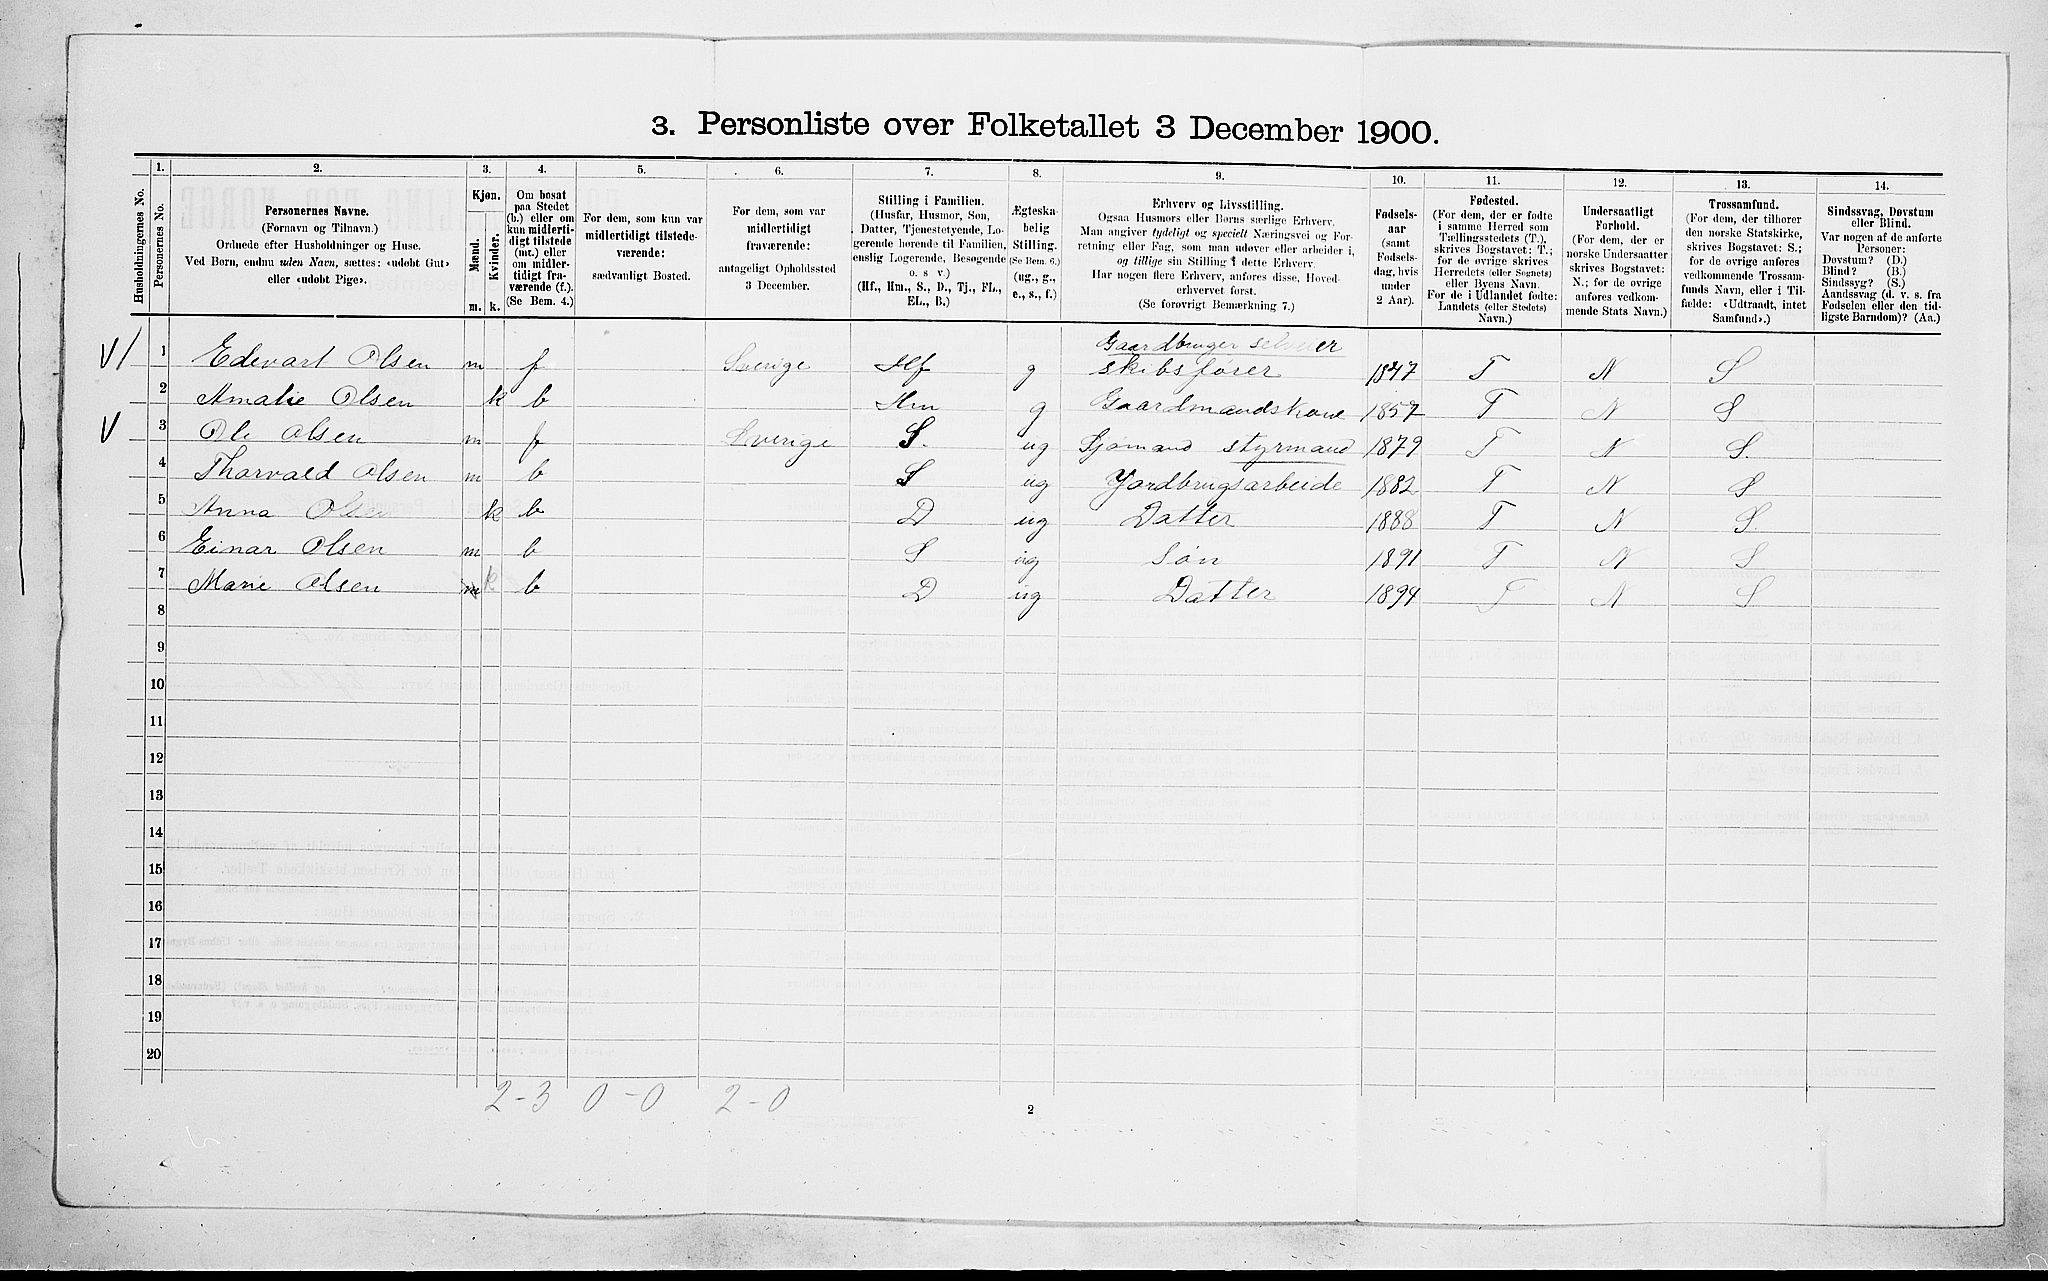 3. Personliste over Folketallet 3 December 1900.
1. 2. 3. 4. 5. 6. 7. 8. 9. 10. 11. 12. 13. 14.
Husholdningernes No.
Personernes No.
Personernes Navne.
(Fornavn og Tilnavn.)
Ordnede efter Husholdninger og Huse.
Ved Børn, endnu uden Navn, sættes: «udøbt Gut»
eller «udøbt Pige».
Kjøn.
Mænd.
Kvinder.
m. k.
Om bosat
paa Stedet
(b.) eller om
kun midlerti-
digt tilstede
(mt.) eller
om midler-
tidigt fra-
værende (f.).
(Se Bem. 4.)
For dem, som kun var
midlertidigt tilstede-
værende:
sædvanligt Bosted.
For dem, som var
midlertidigt
fraværende:
antageligt Opholdssted
3 December.
Stilling i Familien.
(Husfar, Husmor, Søn,
Datter, Tjenestetyende, Lo-
gerende hørende til Familien,
enslig Logerende, Besøgende
o. s v.)
(Hf., Hm., S., D., Tj., FL.,
EL., B.)
Ægteska-
belig
Stilling.
(Se Bem. 6.)
(ug., g.,
e., s., f.)
Erhverv og Livsstilling.
Ogsaa Husmors eller Børns særlige Erhverv.
Man angiver tydeligt og specielt Næringsvei og For-
retning eller Fag, som man udøver eller arbeider i,
og tillige sin Stilling i dette Erhverv.
Har nogen flere Erhverv, anføres disse, Hoved-
erhvervet først.
(Se forøvrigt Bemærkning 7.)
Fødsels-
aar
(samt
Fødsels-
dag, hvis
under
2 Aar).
Fødested.
(For dem, der er fødte
i samme Herred som
Tællingsstedets (T.),
skrives Bogstavet: T.;
for de øvrige skrives
Herredets (eller Sognets)
eller Byens Navn.
For de i Udlandet fødte:
Landets (eller Stedets)
Navn.)
Undersaatligt
Forhold.
(For dem, der er
norske Undersaatter
skrives Bogstavet:
N.; for de øvrige
anføres vedkom-
mende Stats Navn.)
Trossamfund.
(For dem, der tilhører
den norske Statskirke,
skrives Bogstavet: S.;
for de øvrige anføres
vedkommende Trossam-
funds Navn, eller i Til-
fælde: «Udtraadt, intet
Samfund».)
Sindssvag, Døvstum
eller Blind.
Var nogen af de anførte
Personer:
Døvstum? (D.)
Blind? (B.)
Sindssyg? (S.)
Aandssvag (d. v. s. fra
Fødselen eller den tid-
ligste Barndom)? (Aa.)
Gaardbruger selveier
1 Edevart Olsen m f Sverige Hf g skibsfører 1847 T N S
2 Amalie Olsen k b Hm g Gaardmandskone 1857 T N S
3 Ole Olsen m f Sverige S. ug Sjømand styrmand 1879 T N S.
4 Thorvald Olsen m b S ug Jordbrugsarbeide 1882 T N S
5 Anna Olsen k b D ug Datter 1888 T N S.
6 Einar Olsen m b S ug Søn 1891 T N S
7 Marie Olsen m k b D ug Datter 1894 T N S
8
9
10
11
12
13
14
15
16
17
18
19
20
2-3 0-0 2-0
2